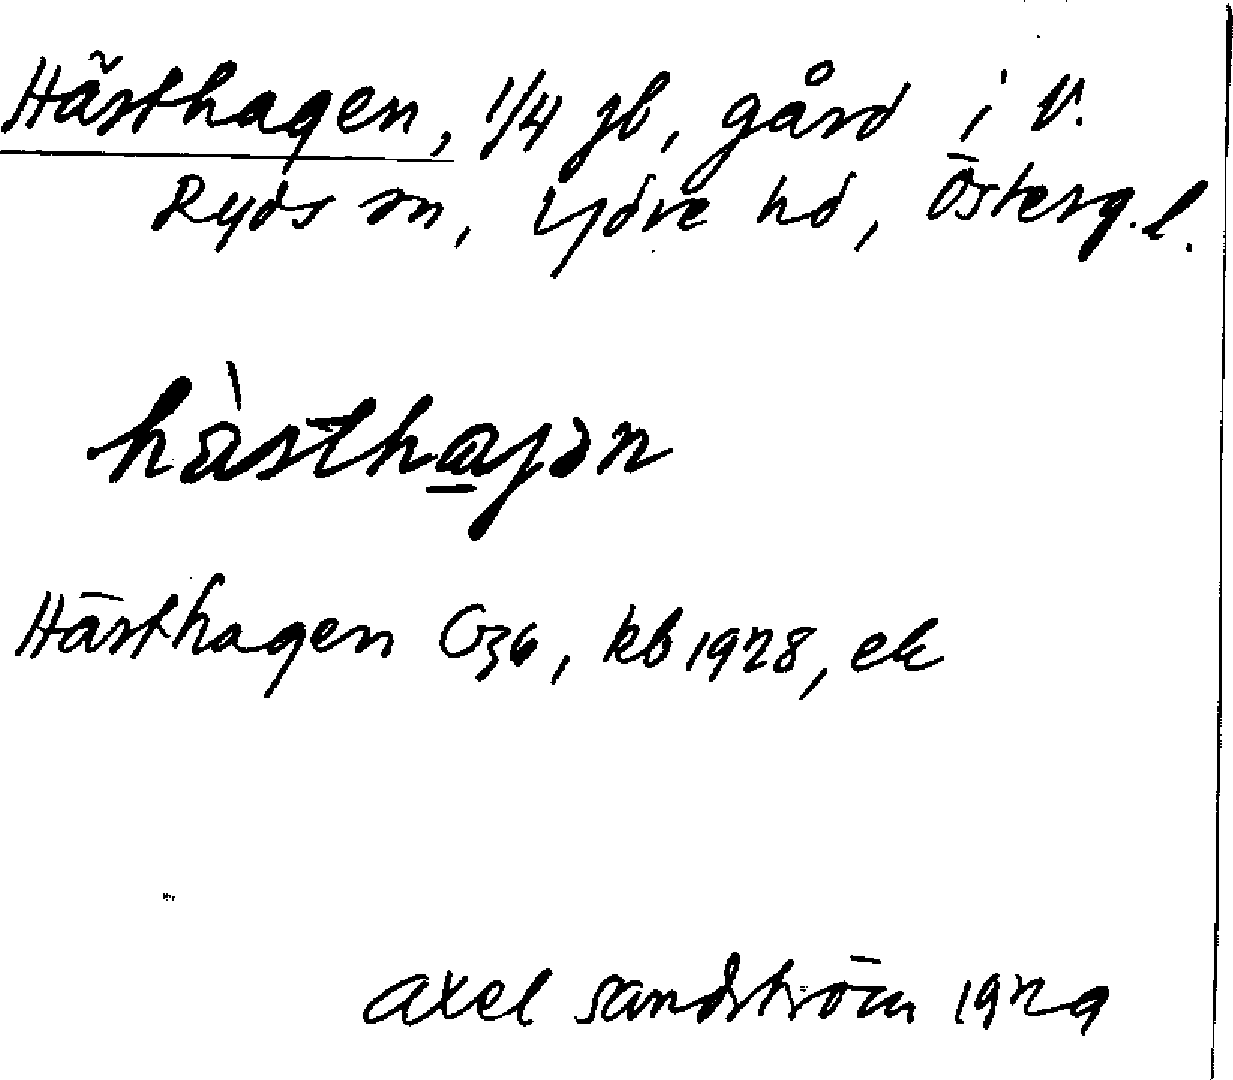 Hästhagen, 1/4 jb, gård i V.
Ryds sn, Ydre hd, Österg. l.
hàsthagən
Hästhagen G36, kb 1928, ek
Axel Sandström 1929